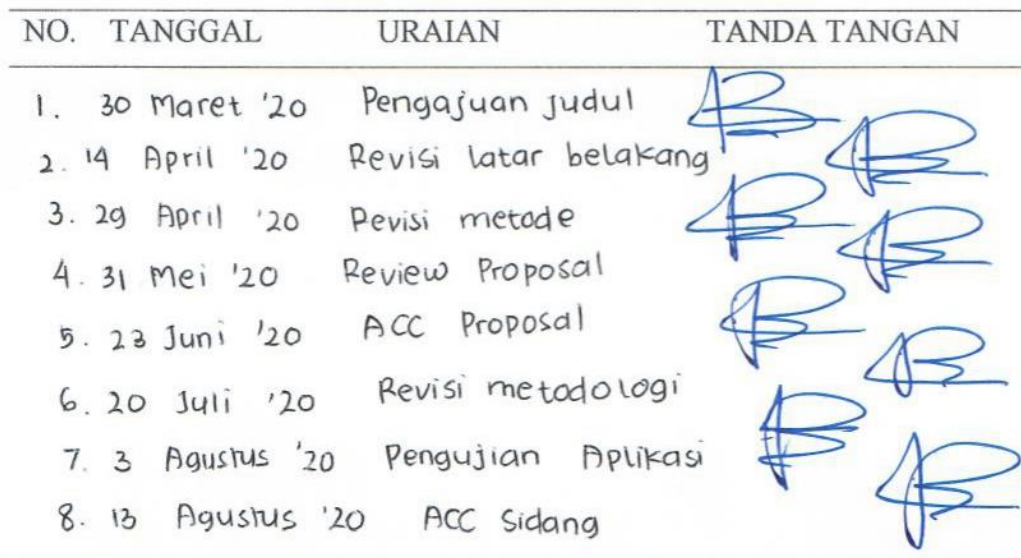 NO. TANGGAL URAIAN TANDA TANGAN
1. 30 Maret '20 Pengajuan Judul
2. 14 April '20 Revisi latar belakang
3. 29 April '20 Revisi metode
4. 31 Mei '20 Review Proposal
5. 23 Juni '20 ACC Proposal
6. 20 Juli '20 Revisi metodologi
7. 3 Agustus '20 Pengujian Aplikasi
8. 13 Agustus '20 ACC Sidang